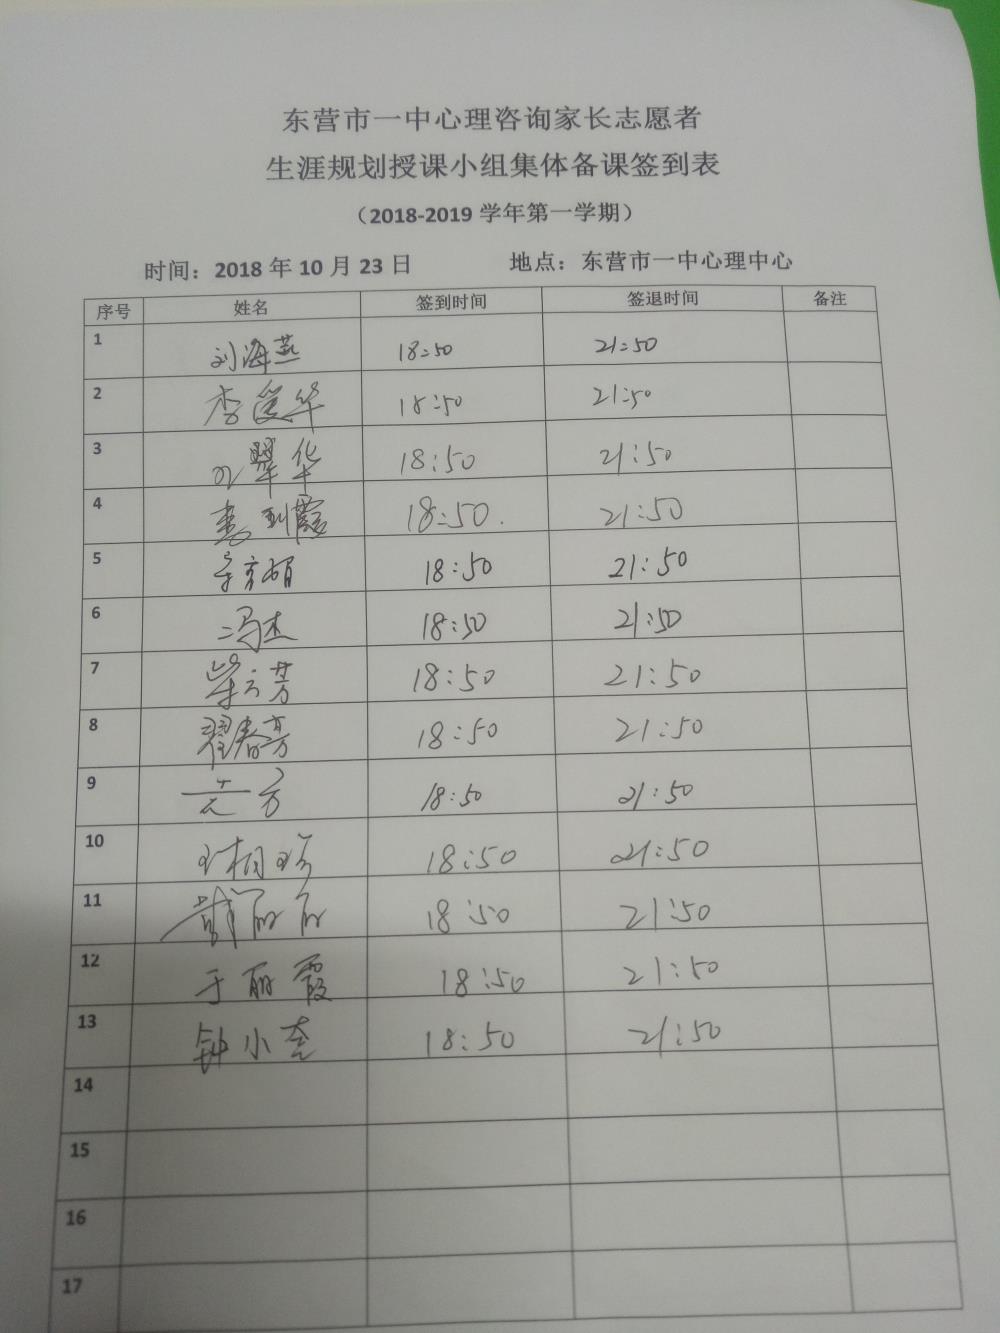 东营市一中心理咨询家长志愿者
生涯规划授课小组集体备课签到表
（2018-2019 学年第一学期）
时间：2018 年 10 月 23 日 地点：东营市一中心理中心
序号 姓名 签到时间 签退时间 备注
1 刘海燕 18:50 21:50
2 李爱华 18:50 21:50
3 翠华 18:50 21:50
4 霞 18:50. 21:50
5 18:50 21:50
6 冯杰 18:50 21:50
7 柴云芳 18:50 21:50
8 翟春芳 18:50 21:50
9 方 18:50 21:50
10 18:50 21:50
11 18:50 21:50
12 于丽霞 18:50 21:50
13 钟小奎 18:50 21:50
14
15
16
17